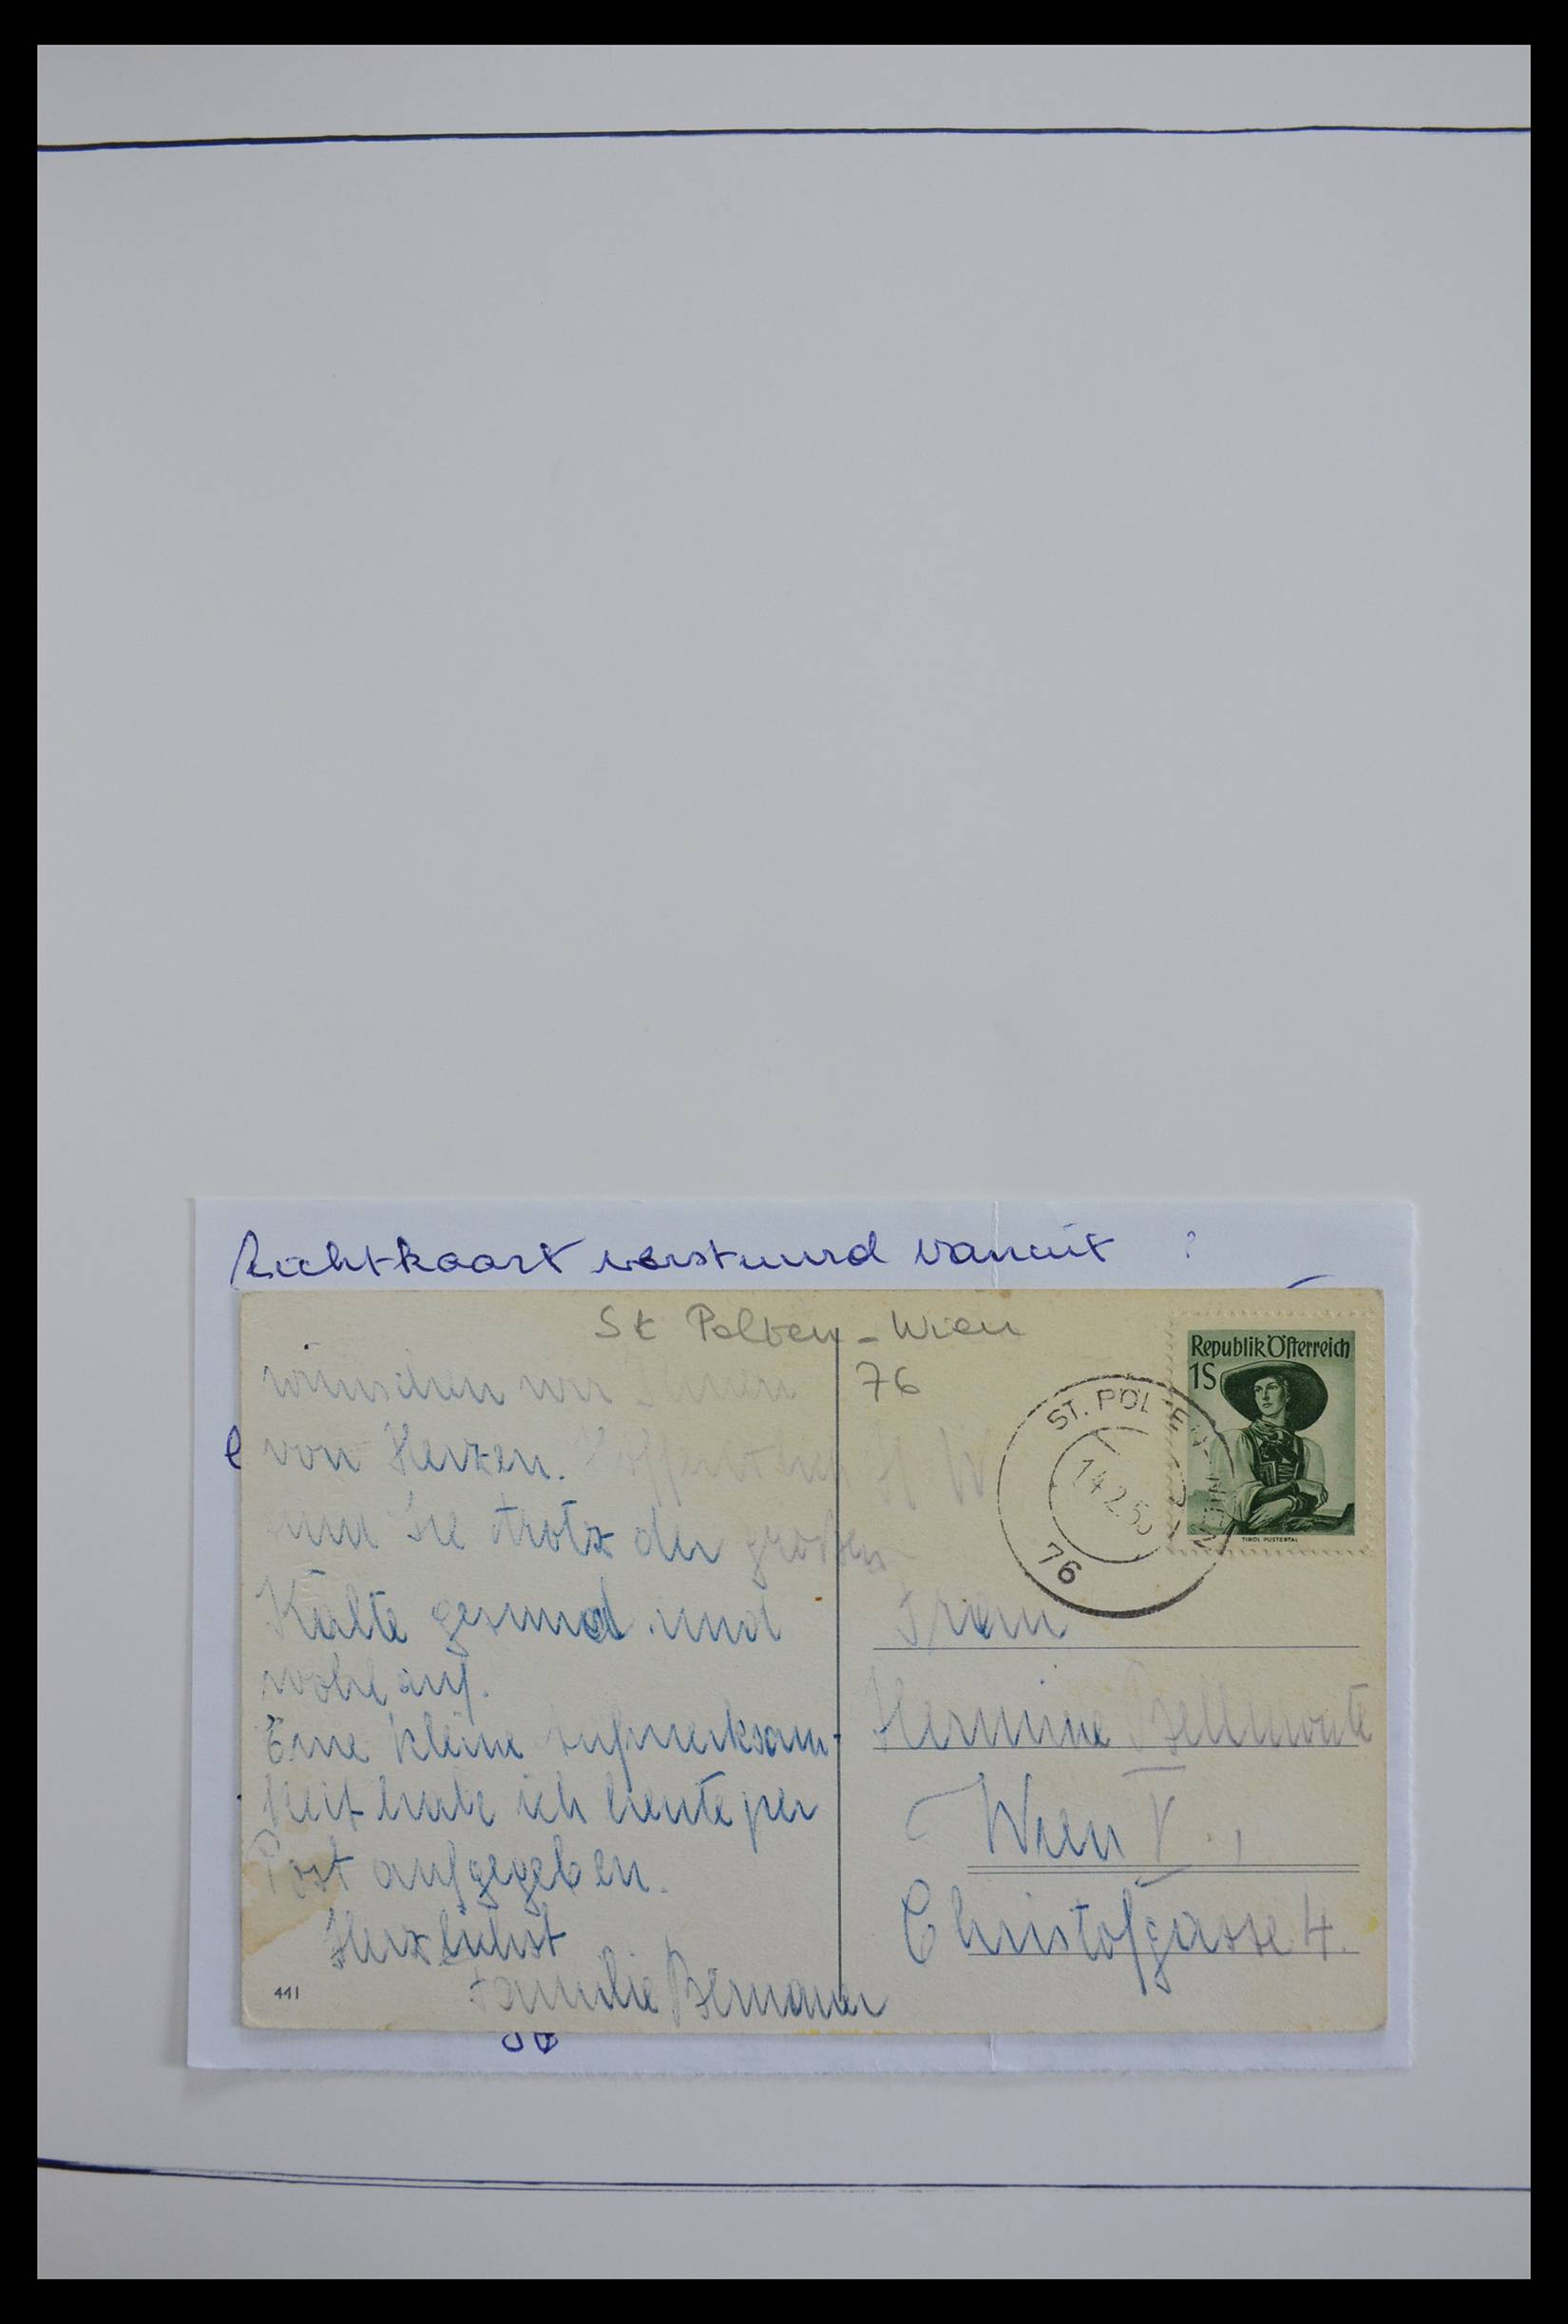 Zichtkaart verstuurd vanuit ?
St Polten - Wien
76
wünschen wir Ihnen
von Herzen. Hoffentlich
Sie trotz der großen
Kälte gesund und
wohlauf.
Eine kleine Aufmerksam-
keit habe ich heute per
Post aufgegeben.
Herzlichst
Familie
441
Republik Österreich
1S
TIROL PUSTERTAL
ST. PÖLTEN - WIEN
14.2.5
76
Frau
Hermine
Wien V.,
Christofgasse 4.